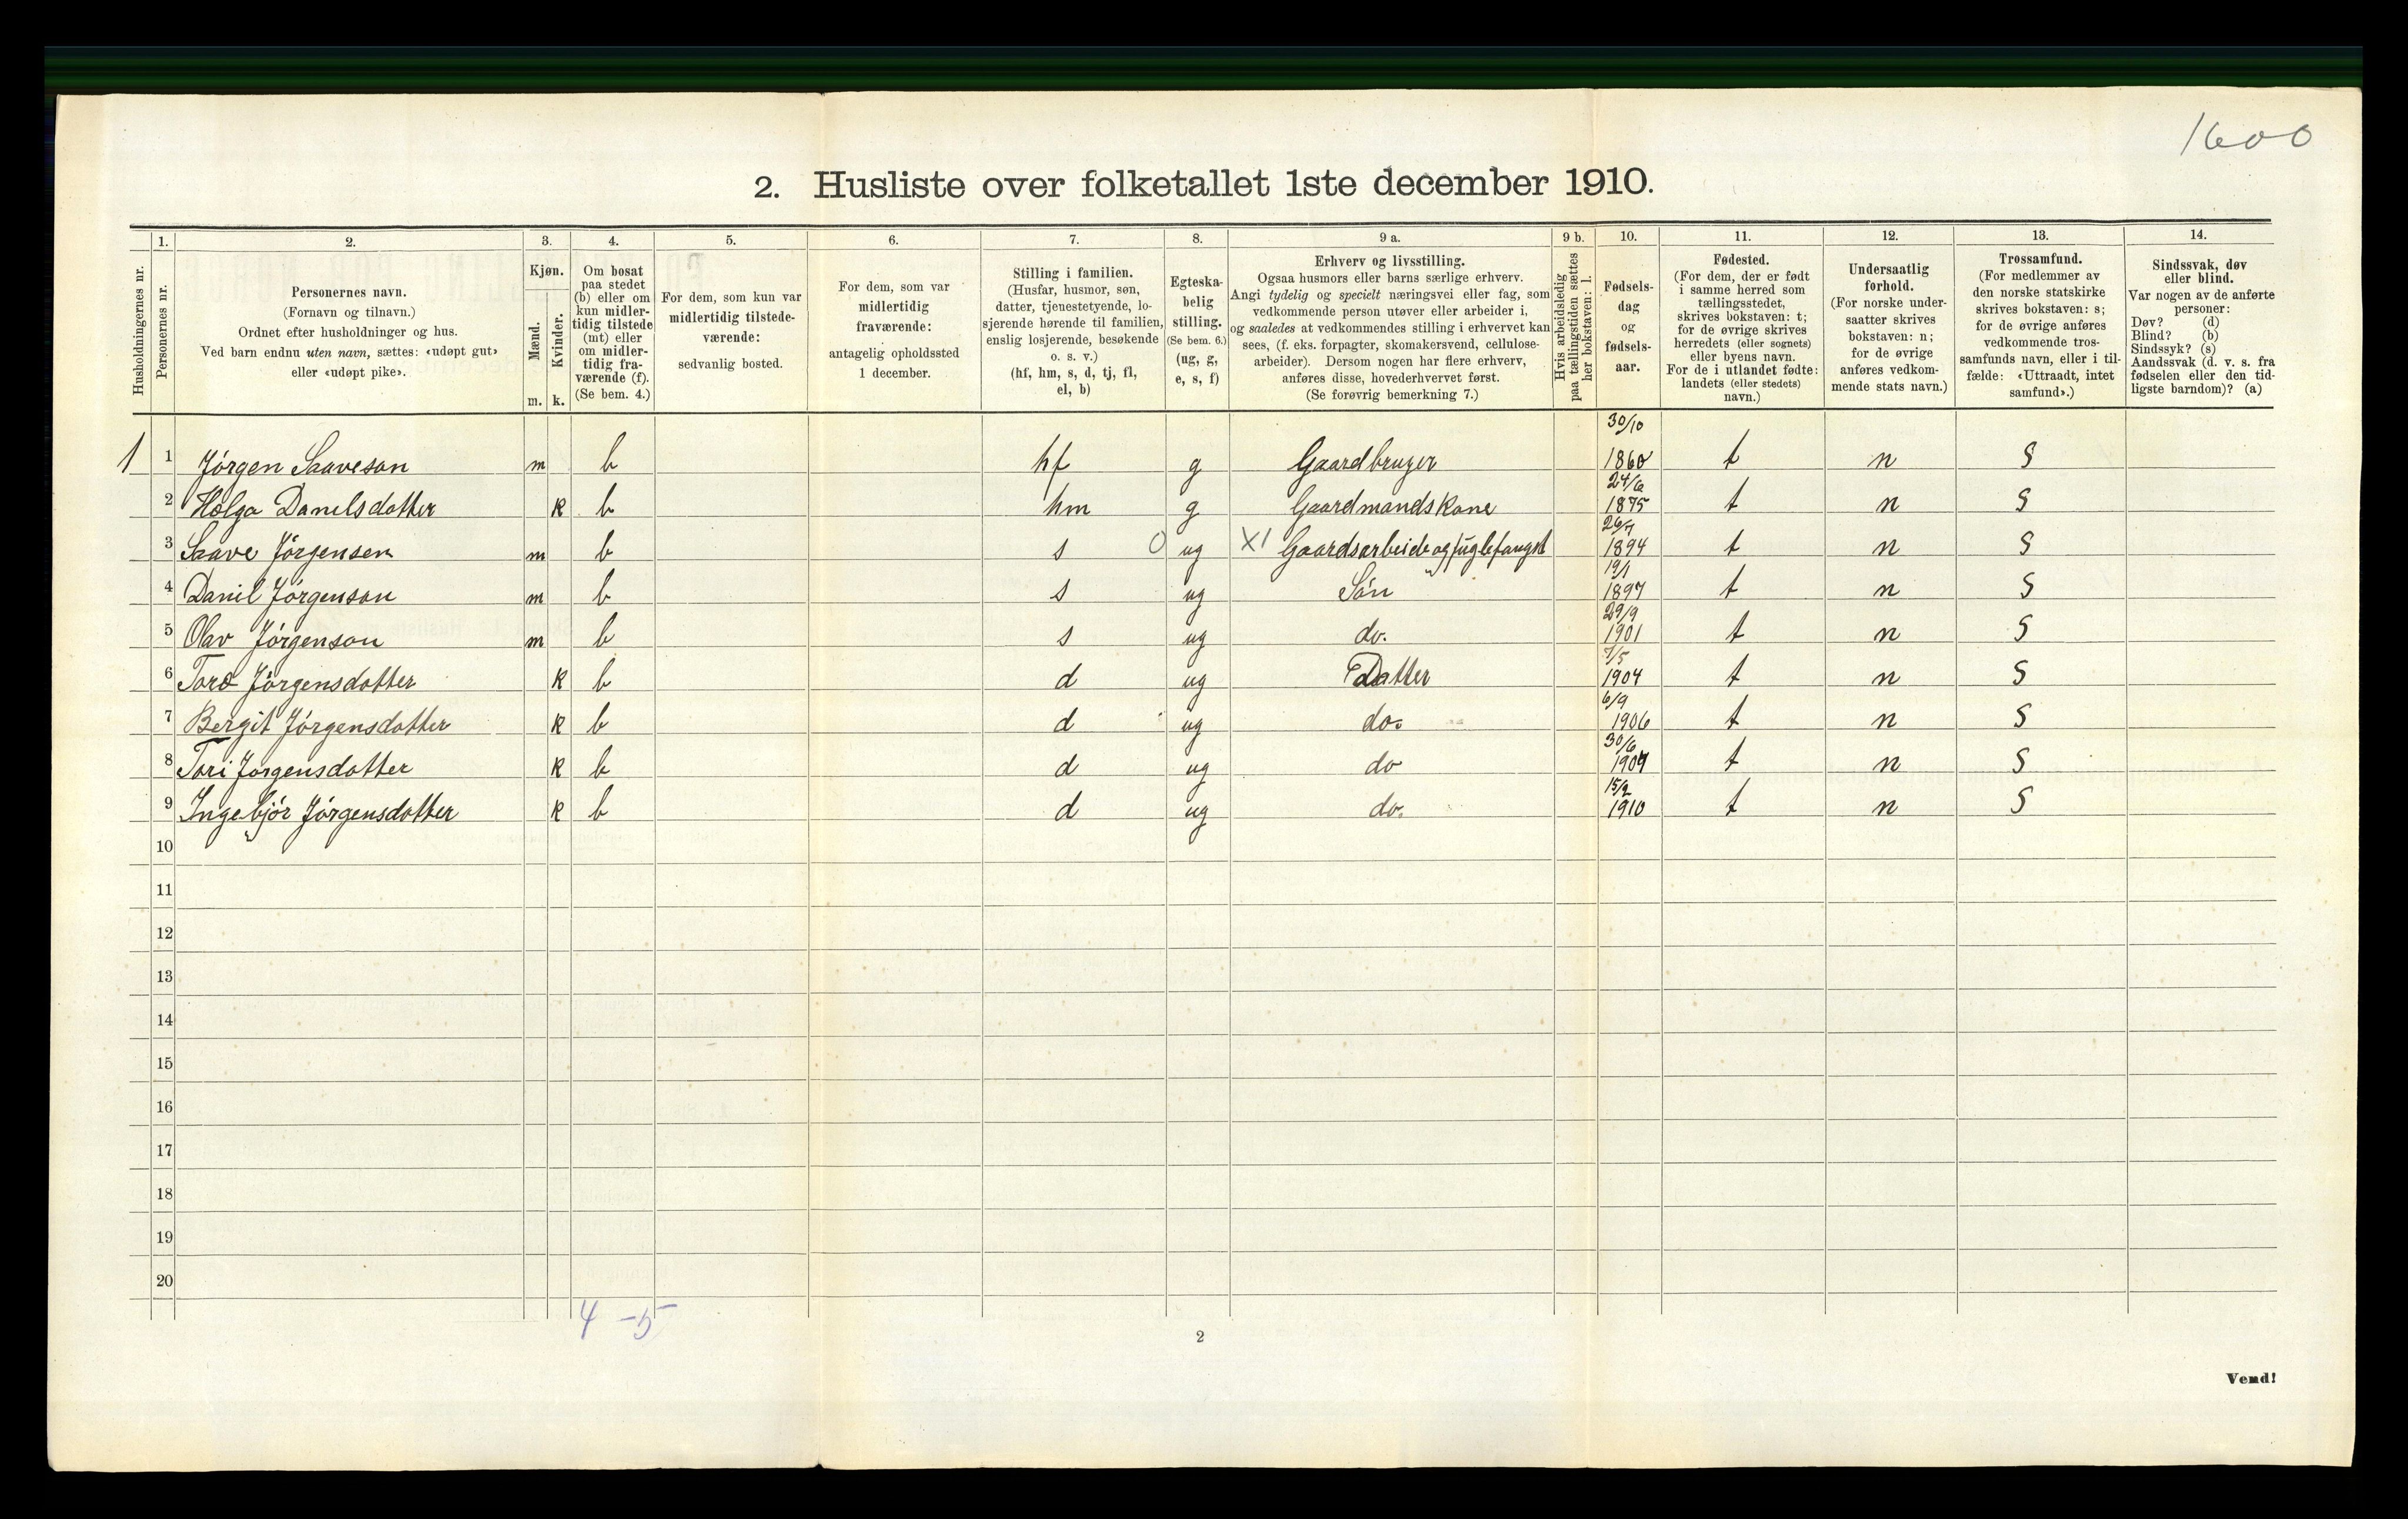 1600
2. Husliste over folketallet 1ste december 1910.
Husholdningernes nr.
1.
Personernes nr.
2.
Personernes navn.
(Fornavn og tilnavn.)
Ordnet efter husholdninger og hus.
Ved barn endnu uten navn, sættes: «udøpt gut»
eller «udøpt pike».
3.
Kjøn.
Mænd.
m.
Kvinder.
k.
4.
Om bosat
paa stedet
(b) eller om
kun midler-
tidig tilstede
(mt) eller
om midler-
tidig fra-
værende (f).
(Se bem. 4.)
5.
For dem, som kun var
midlertidig tilstede-
værende:
sedvanlig bosted.
6.
For dem, som var
midlertidig
fraværende:
antagelig opholdssted
1 december.
7.
Stilling i familien.
(Husfar, husmor, søn,
datter, tjenestetyende, lo-
sjerende hørende til familien,
enslig losjerende, besøkende
o. s. v.)
(hf, hm, s, d, tj, fl,
el, b)
8.
Egteska-
belig
stilling.
(Se bem. 6.)
(ug, g,
e, s, f)
9 a.
Erhverv og livsstilling.
Ogsaa husmors eller barns særlige erhverv.
Angi tydelig og specielt næringsvei eller fag, som
vedkommende person utøver eller arbeider i,
og saaledes at vedkommendes stilling i erhvervet kan
sees, (f. eks. forpagter, skomakersvend, cellulose-
arbeider). Dersom nogen har flere erhverv,
anføres disse, hovederhvervet først.
(Se forøvrig bemerkning 7.)
9 b.
Hvis arbeidsledig
paa tællingstiden sættes
her bokstaven: l.
10.
Fødsels-
dag
og
fødsels-
aar.
11.
Fødested.
(For dem, der er født
i samme herred som
tællingsstedet,
skrives bokstaven: t;
for de øvrige skrives
herredets (eller sognets)
eller byens navn.
For de i utlandet fødte:
landets (eller stedets)
navn.)
12.
Undersaatlig
forhold.
(For norske under-
saatter skrives
bokstaven: n;
for de øvrige
anføres vedkom-
mende stats navn.)
13.
Trossamfund.
(For medlemmer av
den norske statskirke
skrives bokstaven: s;
for de øvrige anføres
vedkommende tros-
samfunds navn, eller i til-
fælde: «Uttraadt, intet
samfund».)
14.
Sindssvak, døv
eller blind.
Var nogen av de anførte
personer:
Døv? (d)
Blind? (b)
Sindssyk? (s)
Aandssvak (d. v. s. fra
fødselen eller den tid-
ligste barndom)? (a)
1 1 Jórgen Saaveson m b hf g Gaardbruger 30/10 1860 t n S
2 Helga Danilsdotter k b hm g Gaardmandskone 24/6 1875 t n S
3 Saave Jórgensen m b s 0 ug X1 Gaardsarbeide og fuglefangst 26/7 1894 t n S
4 Danil Jórgenson m b s ug Són 19/1 1897 t n S
5 Olav Jórgenson m b s ug do. 29/9 1901 t n S
6 Toro Jórgensdotter k b d ug Datter 7/5 1904 t n S
7 Bergit Jórgensdotter k b d ug do. 6/9 1906 t n S
8 Tori Jorgensdotter k b d ug do 30/6 t n S
9 Ingebjór Jórgensdotter k b d ug do. 15/2 1910 t n S
10
11
12
13
14
15
16
17
18
19
20
4 – 5
2
Vend!